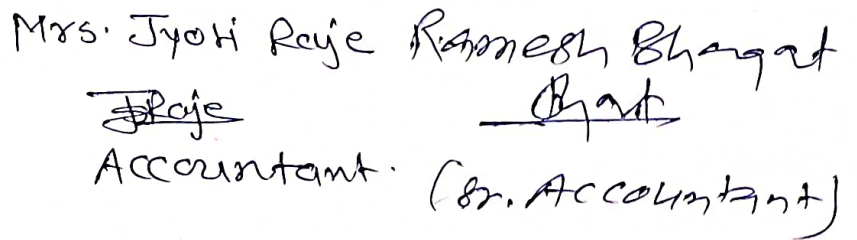 Mrs. Jyoti Raje Ramesh Bhagat
JRaje
Accountant. (Sr. Accountant)